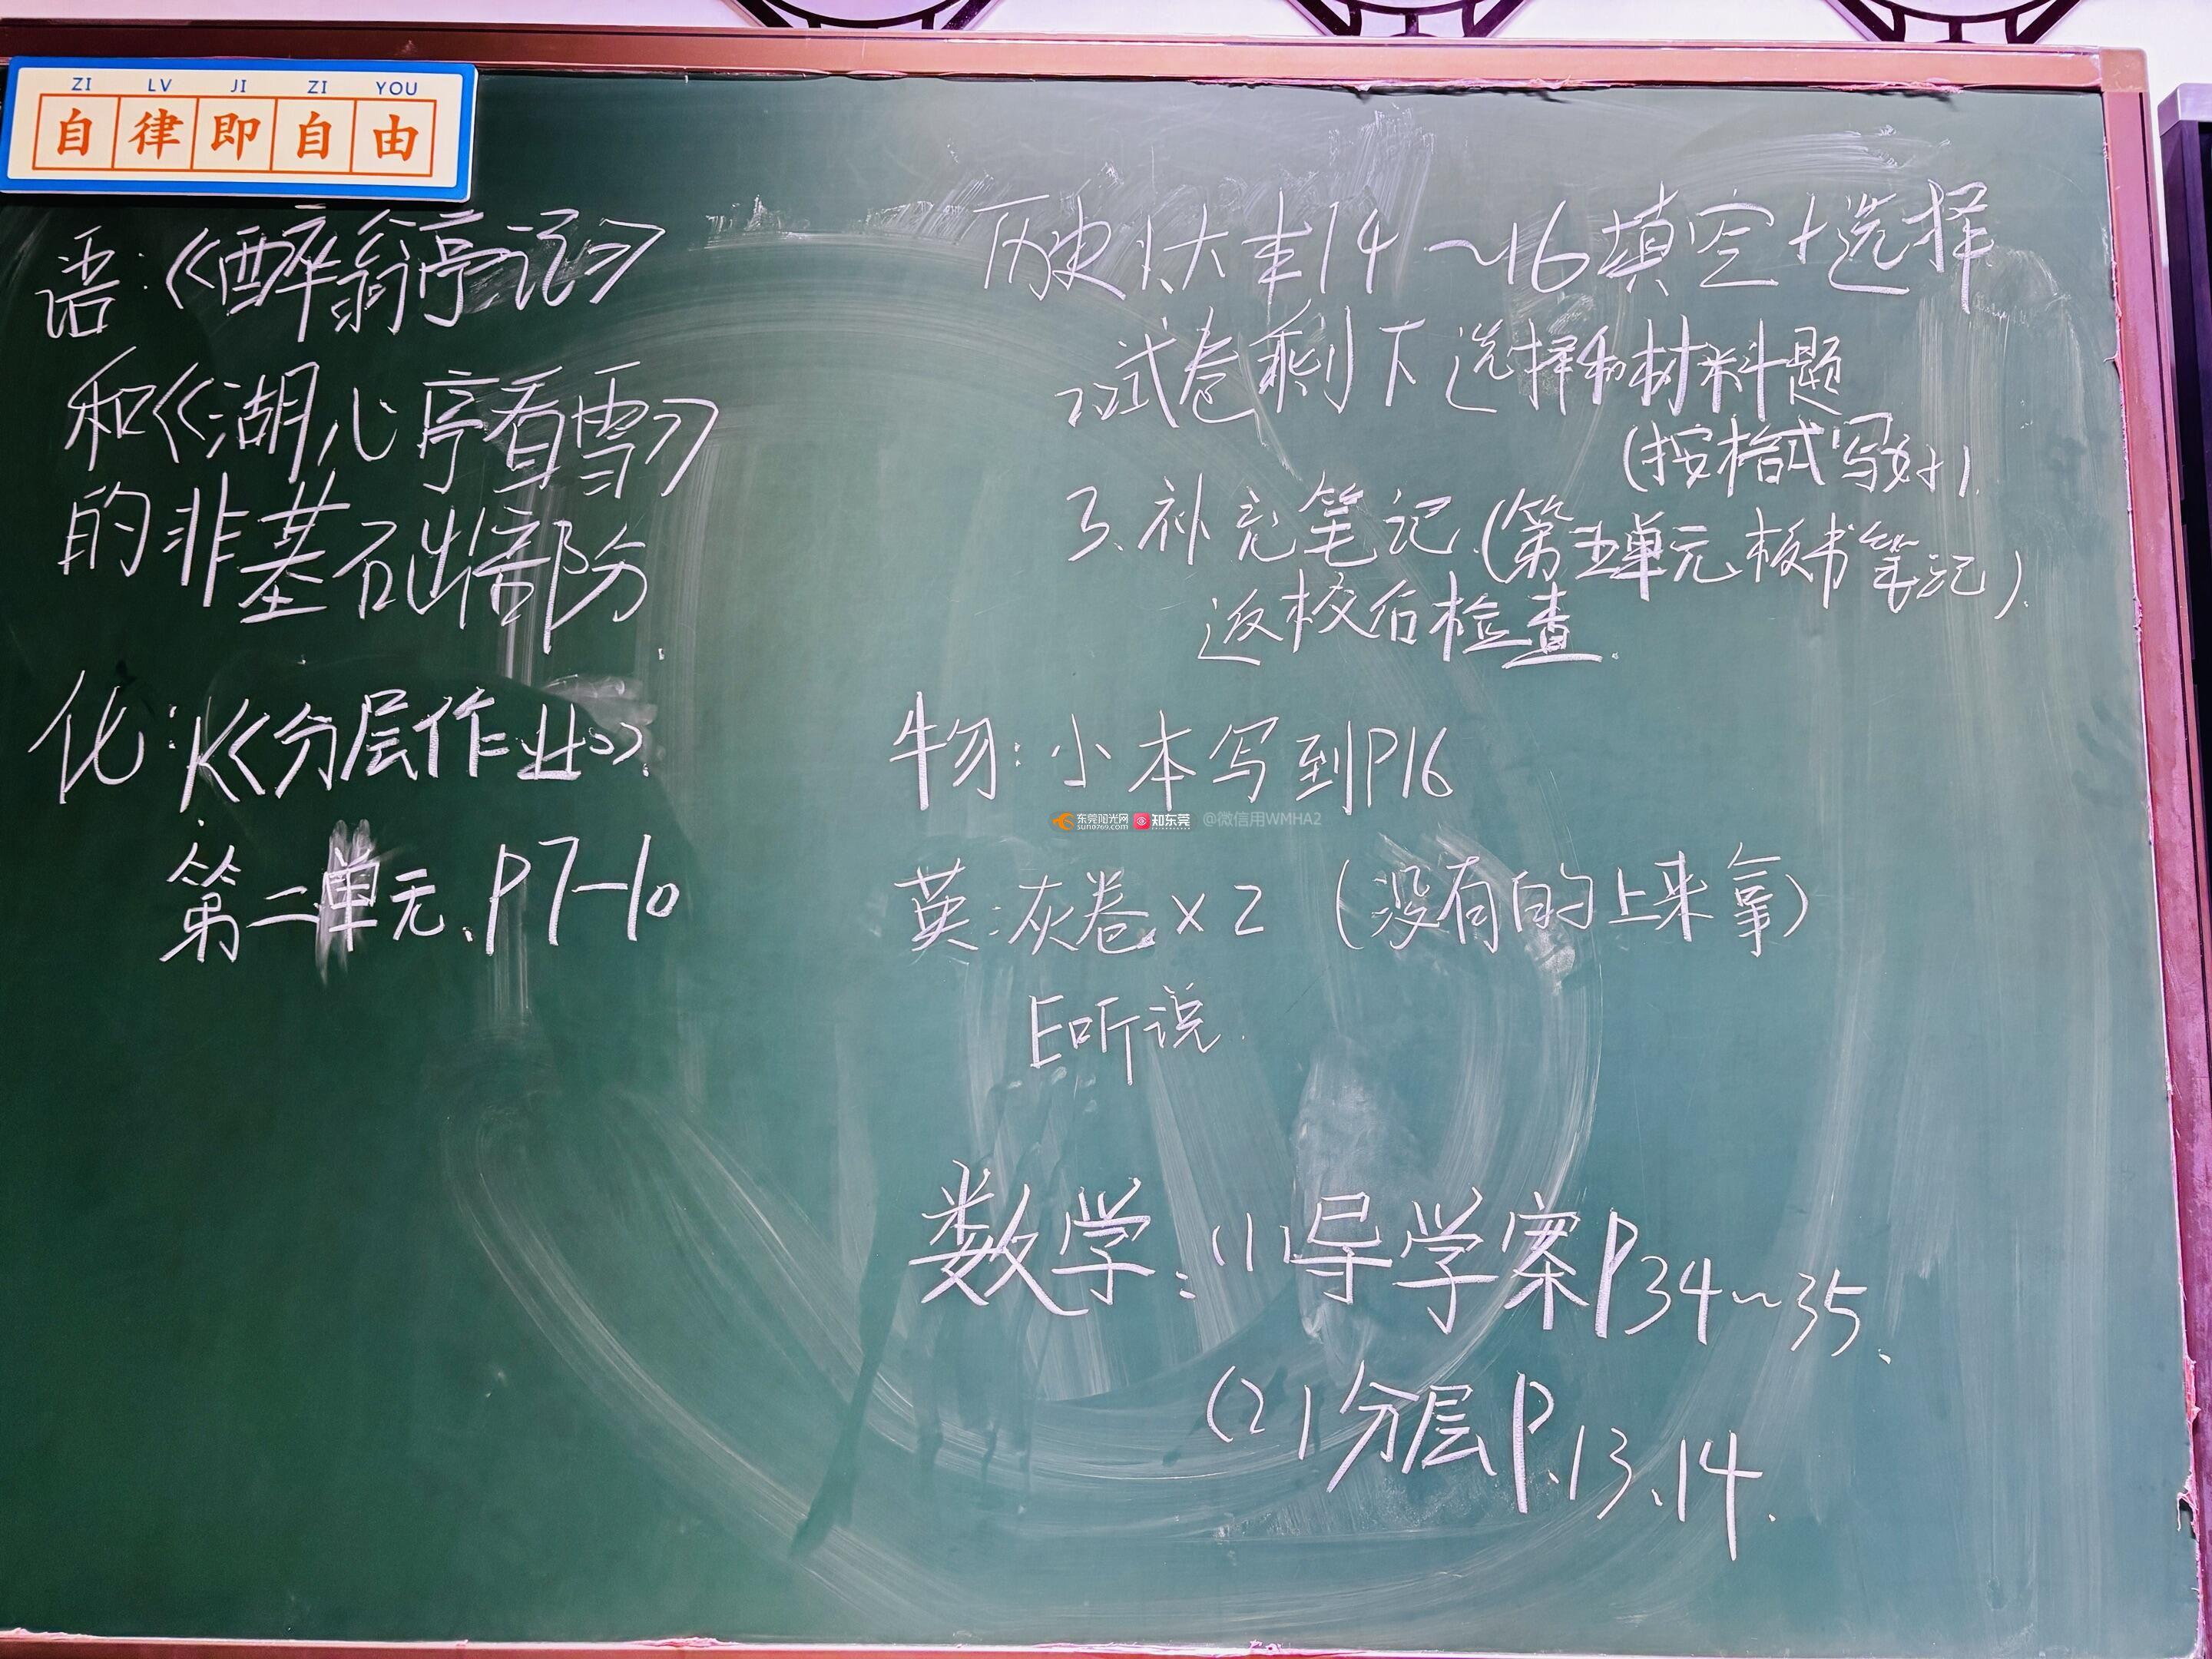 ZI LV JI ZI YOU
自律即自由
语:《醉翁亭记》
和《湖心亭看雪》
的非基础部分
化:1.《分层作业》
第二单元.P7-10
历史1.大丰14~16填空+选择
2.试卷剩下选择和材料题
(按格式写好)
3.补充笔记.(第五单元板书笔记)
返校后检查.
物:小本写到P16
东莞阳光网 sun0769.com 知东莞 @微信用WMHA2
英:灰卷×2 (没有的上来拿)
E听说.
数学:(1)导学案P34~35.
(2)分层P.13、14.